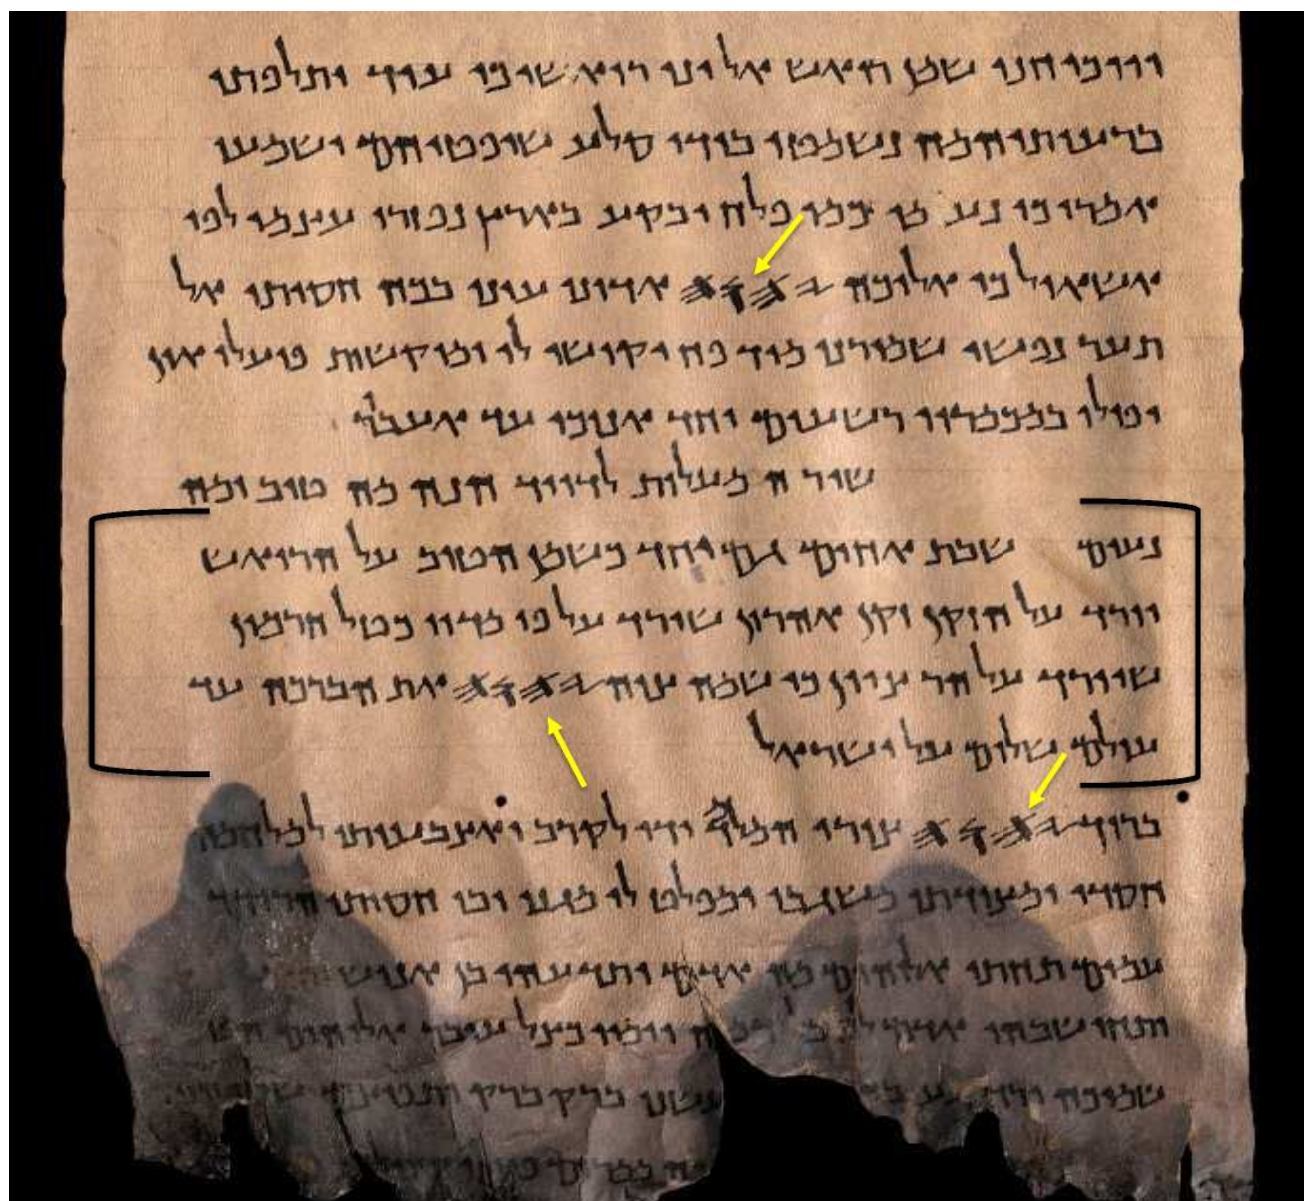 ויוכיחני שמן רואש אל יני רואשי כי עוד ותלפתי
ברעותיהמה נשמטו בידי סלע שופטיהם ושמעו
אמרי כי נעמו כמו פלח ובקע בארץ נפזרו עצמי לפי
אשאול כי אליכה 𐤉𐤄𐤅𐤄 אדוני עיני בכה חסיתי אל
תער נפשי שמורני מיד פח יקושו לי ומוקשות פועלי און
יפולו במכמריו רשעים יחד אנוכי עד אעבר
שיר המעלות לדויד הנה מה טוב ומה
נעים שבת אחים גם יחד כשמן הטוב על הרואש
יורד על הזקן זקן אהרון שיורד על פי מדיו כטל חרמון
שיורד על הר ציון כי שמה צוה 𐤉𐤄𐤅𐤄 את הברכה עד
עולם שלום על ישראל
ברוך 𐤉𐤄𐤅𐤄 צורי המלמד ידי לקרב ואצבעותי למלחמה
חסדי ומצודתי משגבי ומפלט לי מגני ובו חסיתי הרודד
עמים תחתי אלוהים מה אדם ותדעהו בן אנוש
אדם וימיו כצל עובר אלוהים הט
שמיכה ורד ברק